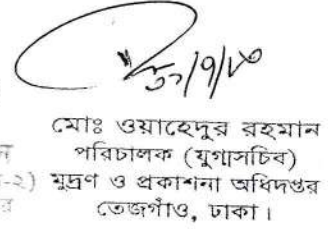 মোঃ ওয়াহেদুর রহমান
পরিচালক (যুগ্মসচিব)
-২) মুদ্রণ ও প্রকাশনা অধিদপ্তর
তেজগাঁও, ঢাকা।